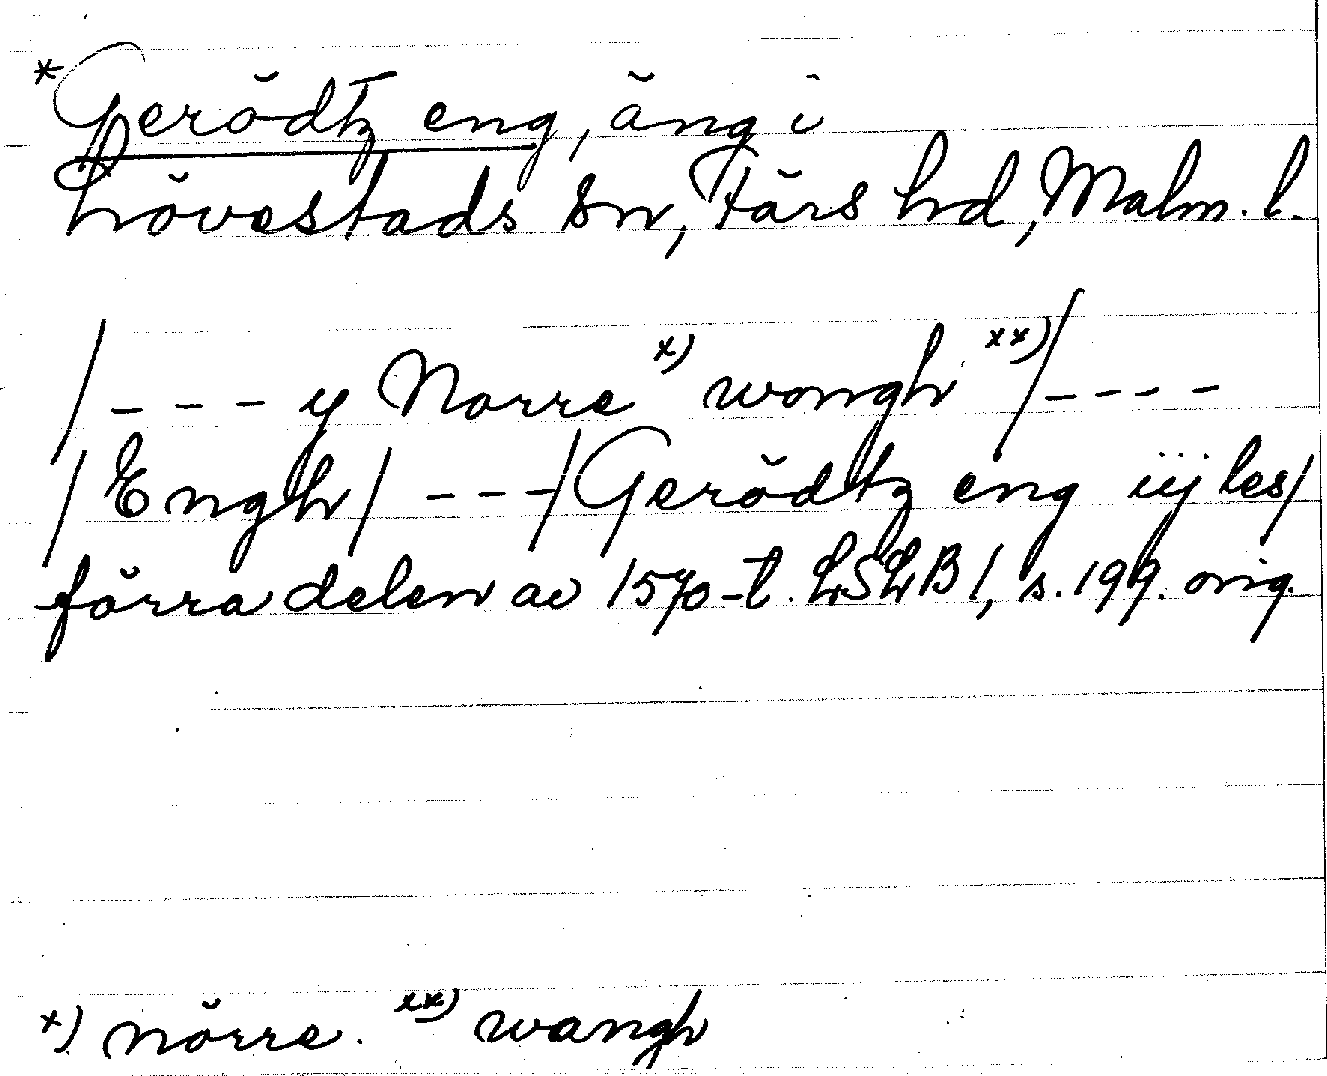 *Gerödtz eng, äng i
Lövestads sn, Färs hd, Malm. l.
/- - - y Norre x) wongh xx)/- - - -
/Engh/ - - -/Gerödtz eng iij les/
förra delen av 1570-t. LSLB 1, s. 199. orig.
x) nörre. xx) wangh